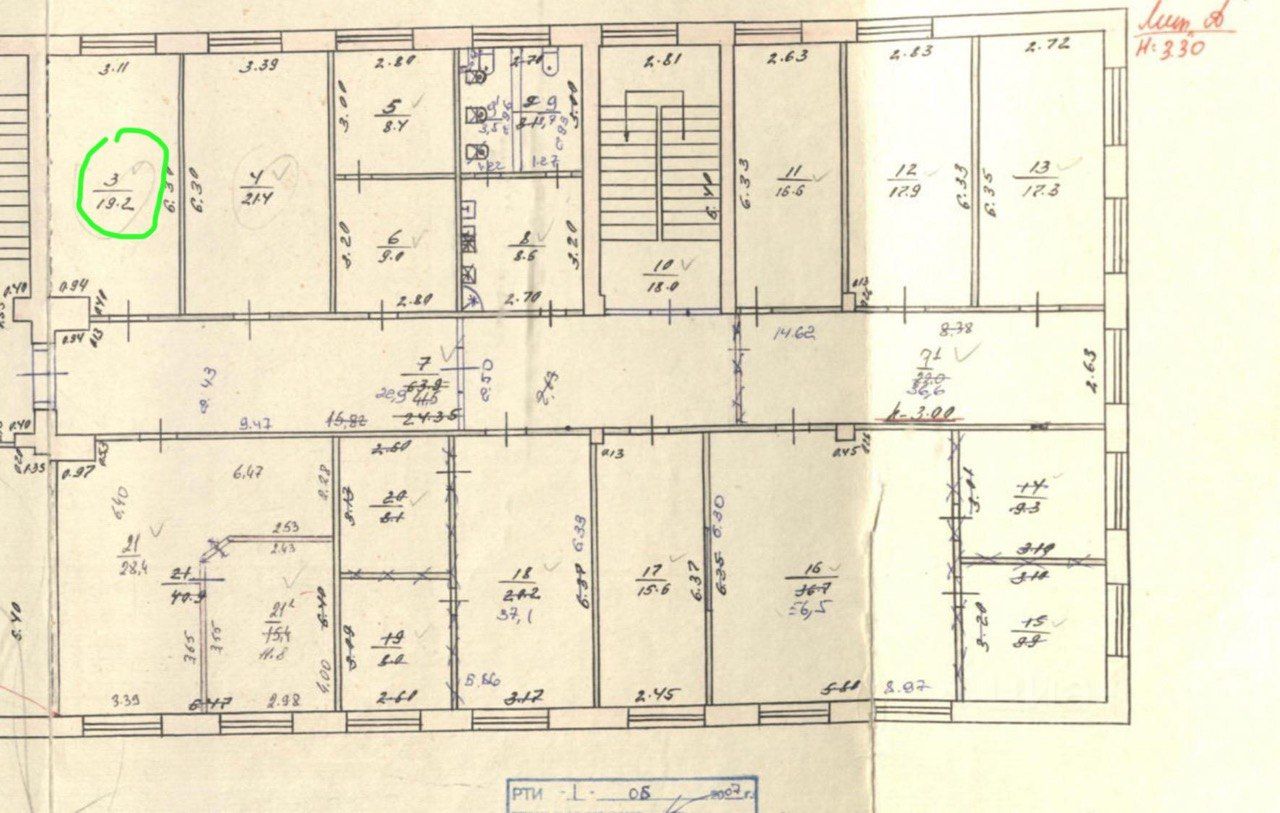 Лит. А
Н=3.30
3.11
3.39
2.80
2.70
2.81
2.63
2.83
2.72
3
19.2
6.30
6.30
4
21.4
3.00
5
8.4
3.20
6
9.0
2.80
9
3.00
1.22
1.27
8
8.6
3.20
2.70
6.40
10
18.0
6.33
11
16.6
12
17.9
6.33
6.35
13
17.3
0.40
0.94
0.94
7
63.9
41.5
24.35
2.43
9.47
15.82
2.50
2.43
14.62
8.38
71
36,6
h=3.00
2.63
0.40
1.35
0.97
6.47
6,40
21
28,4
21
40.9
2.53
2.43
2.28
21²
15,4
11.8
6.40
4.00
3.65
3.55
3.39
6.47
2.98
2.60
3.13
20
8.1
3.09
19
8.0
2.60
18
20.2
37,1
5.86
3.17
6.33
6.37
0.13
17
15.6
6.37
2.45
6.30
6.35
16
36.7
56,5
5.80
8.97
0.45
3.01
14
9.3
3.10
3.10
3.20
15
9.9
6.40
РТИ - 1 - 06 2007 г.